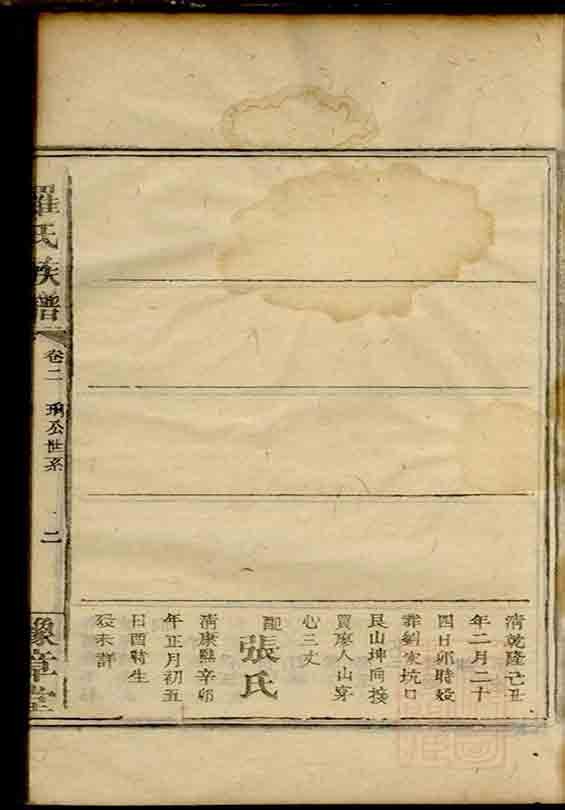 清乾隆己丑
年二月二十
四日卯時歿
葬劉家坑口
艮山坤向接
買廖人山穿
心三丈
配張氏
清康熙辛卯
年正月初五
日酉時生
歿未詳
羅氏族譜
卷二
瑀公世系
二
豫章堂